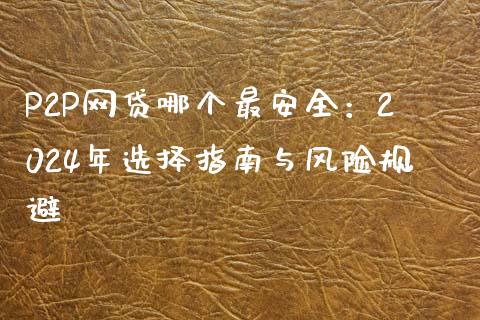 P2P网贷哪个最安全：2
024年选择指南与风险规
避